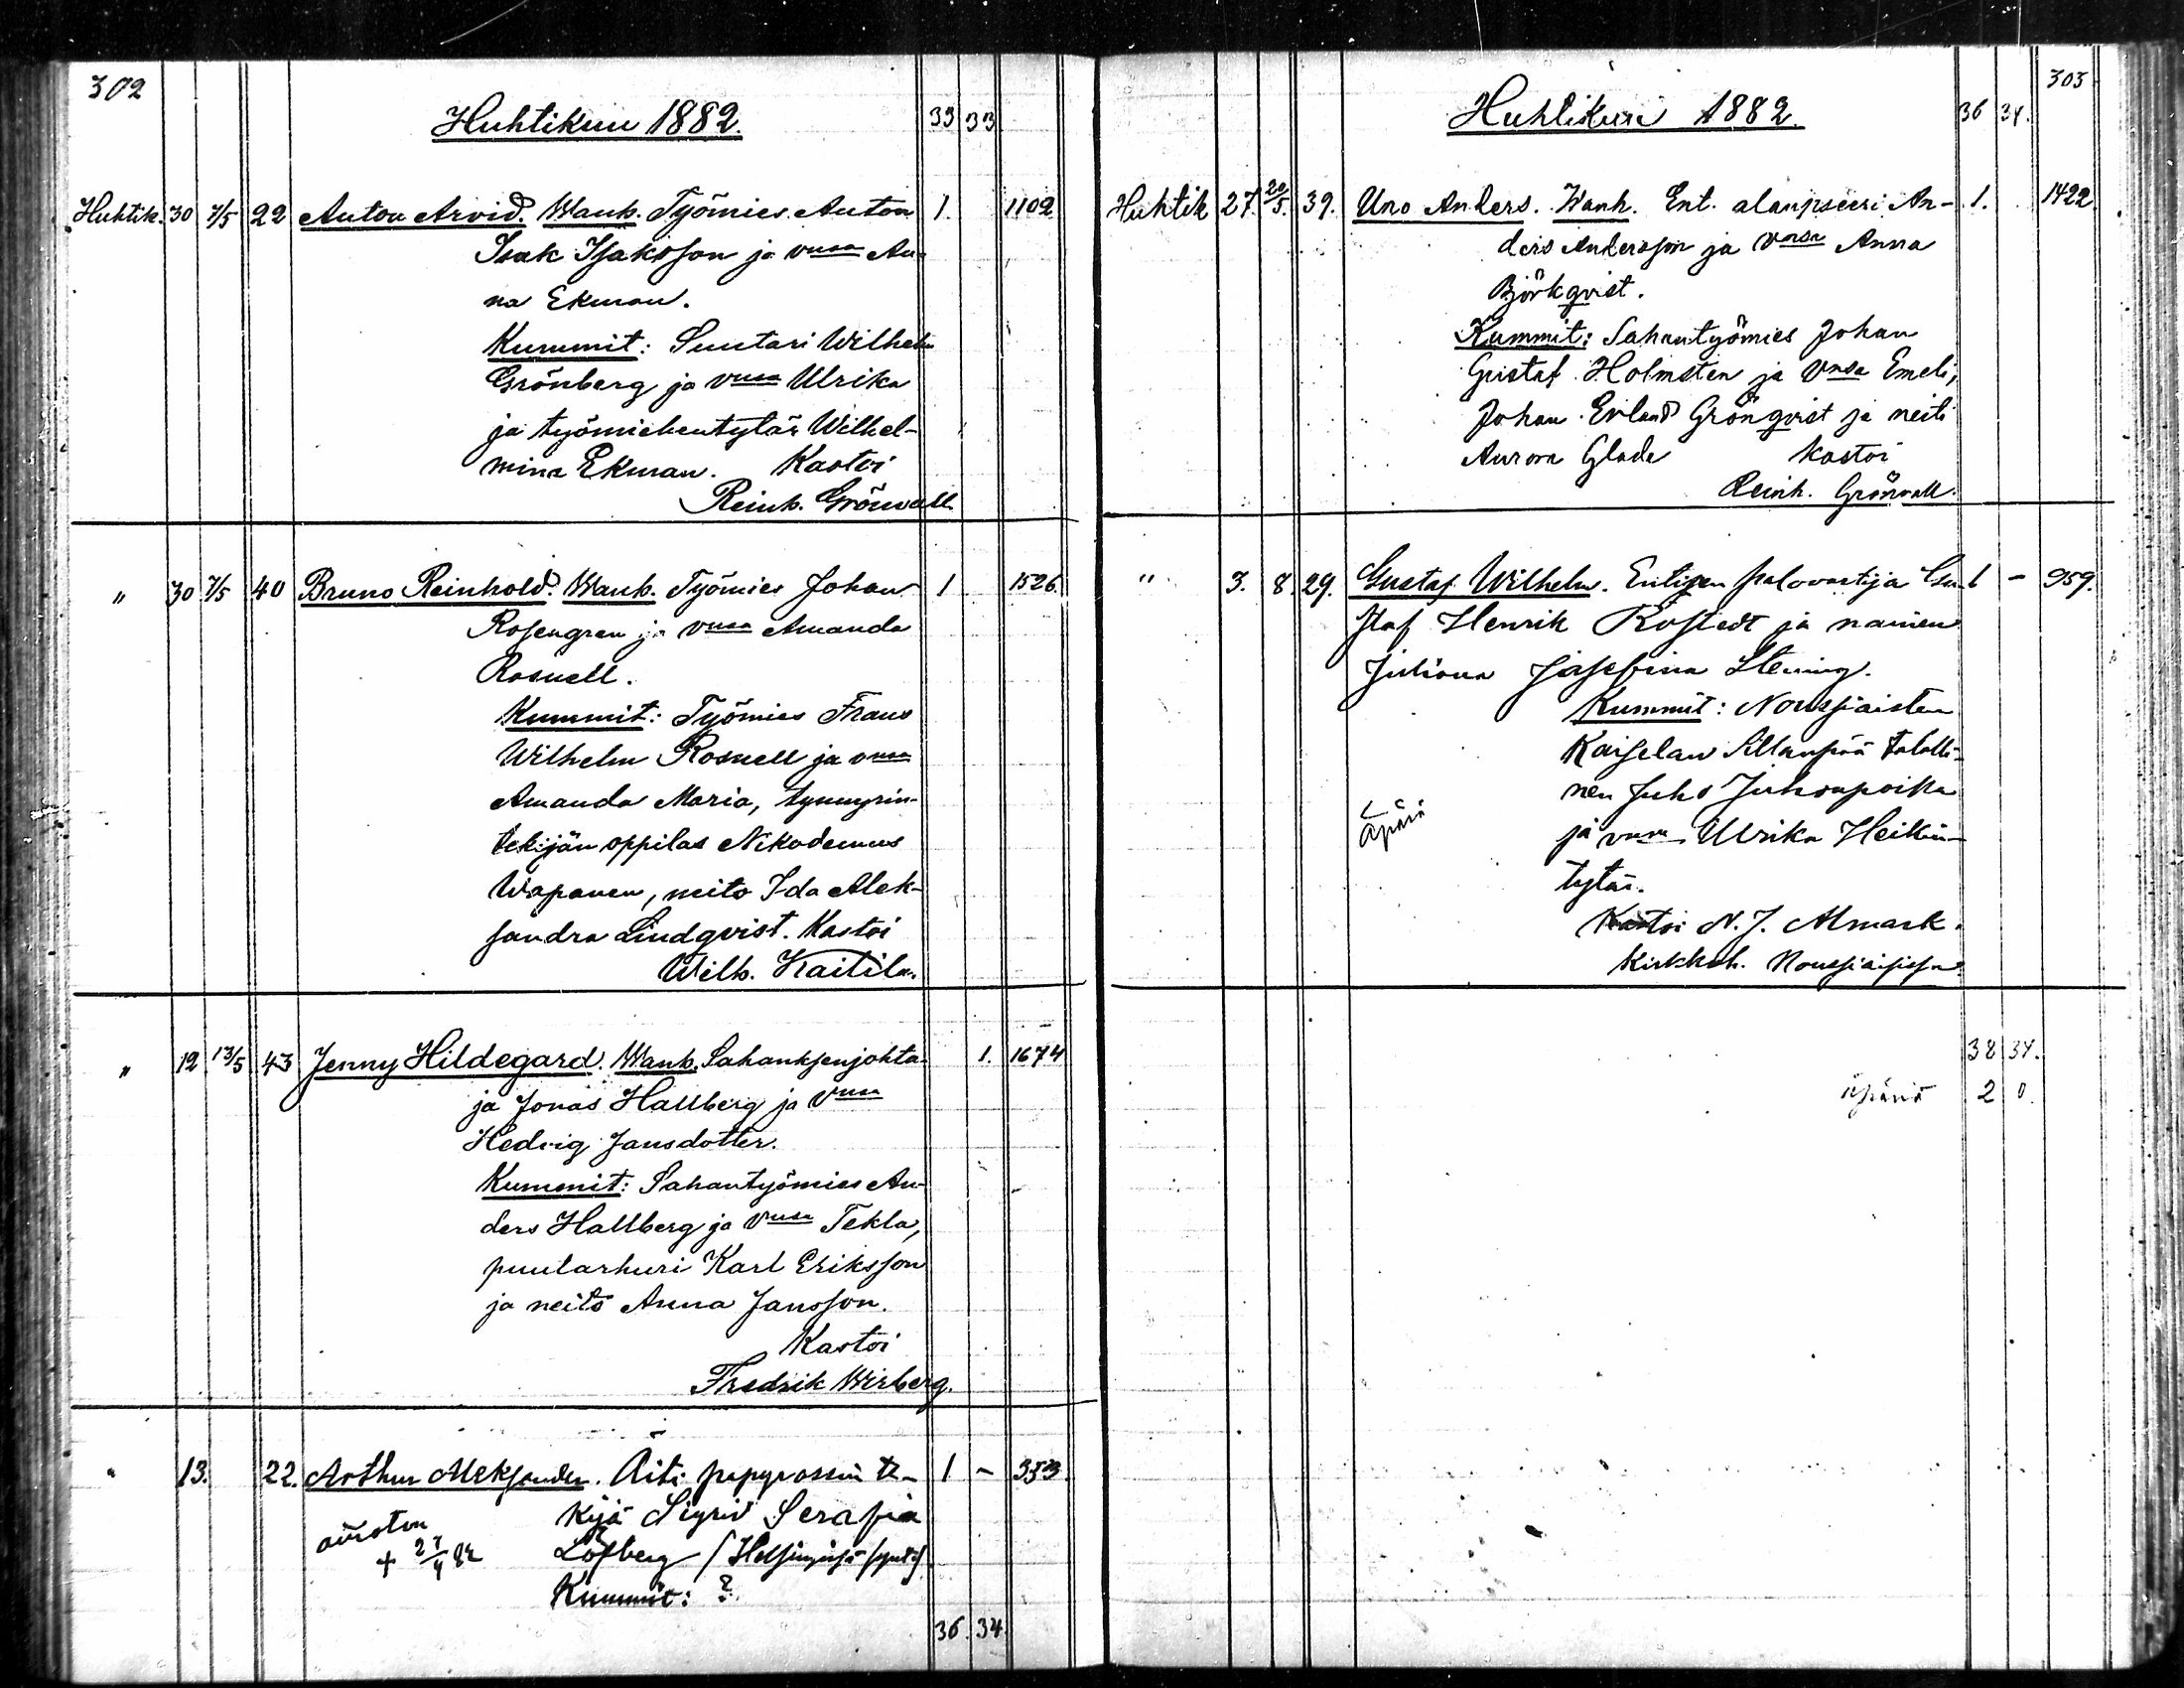 302
Huhtikuu 1882. 33 33
Huhtik. 30 7/5 22 Anton Arvid. Wanh. Työmies Anton 1. 1102
Isak Isaksson ja vmsa An-
na Ekman.
Kummit: Suutari Wilhelm
Grönberg ja vmsa Ulrika
ja työmiehentytär Wilhel-
mina Ekman. Kastoi
Reinh. Grönvall.
" 30 7/5 40 Bruno Reinhold. Wanh. Työmies Johan 1 1526.
Rosengren ja vmsa Amanda
Rosnell.
Kummit: Työmies Frans
Wilhelm Rosnell ja vmsa
Amanda Maria, tynnyrin-
tekijän oppilas Nikodemus
Wapanen, neito Ida Alek-
sandra Lindqvist. Kastoi
Wilh. Kaitila.
" 12 13/5 43 Jenny Hildegard. Wanh. Sahauksenjohta- 1. 1674
ja Jonas Hallberg ja vmsa
Hedvig Jansdotter.
Kummit: Sahantyömies An-
ders Hallberg ja vmsa Tekla,
puutarhuri Karl Eriksson
ja neito Anna Jansson.
Kastoi
Fredrik Wirberg.
" 13. 22. Arthur Aleksander. Äiti papyrossin te- 1 - 353
kijä Sigrid Serafia
Löfberg
+ 27/4 82
Kummit: ?
36. 34.
303
Huhtikuu 1882. 36 34.
Huhtik 27. 20/5. 39. Uno Anders. Wanh. Ent. alaupseeri An- 1. 1422
ders Andersson ja vmsa Anna
Björkqvist.
Kummit: Sahantyömies Johan
Gustaf Holmsten ja vmsa Emeli,
Johan Erland Grönqvist ja neiti
Aurora Glade kastoi
Reinh. Grönvall.
" 3. 8. 29. Gustaf Wilhelm. Entisen palovartija Gu- 1 - 959.
staf Henrik Rostedt ja nainen
Juliana Josefina Stening.
Kummit: Nousiaisten
Kaiselan Allanpää talolli-
nen Juho Juhonpoika
ja vmsa Ulrika Heikin-
tytär.
äpärä
Kastoi N. J. Almark.
Kirkkoh. Nousiaisissa.
38 34.
äpäriä 2 0.